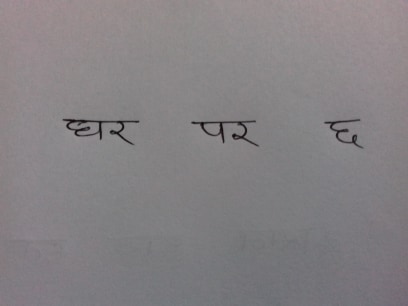 घर पर छ